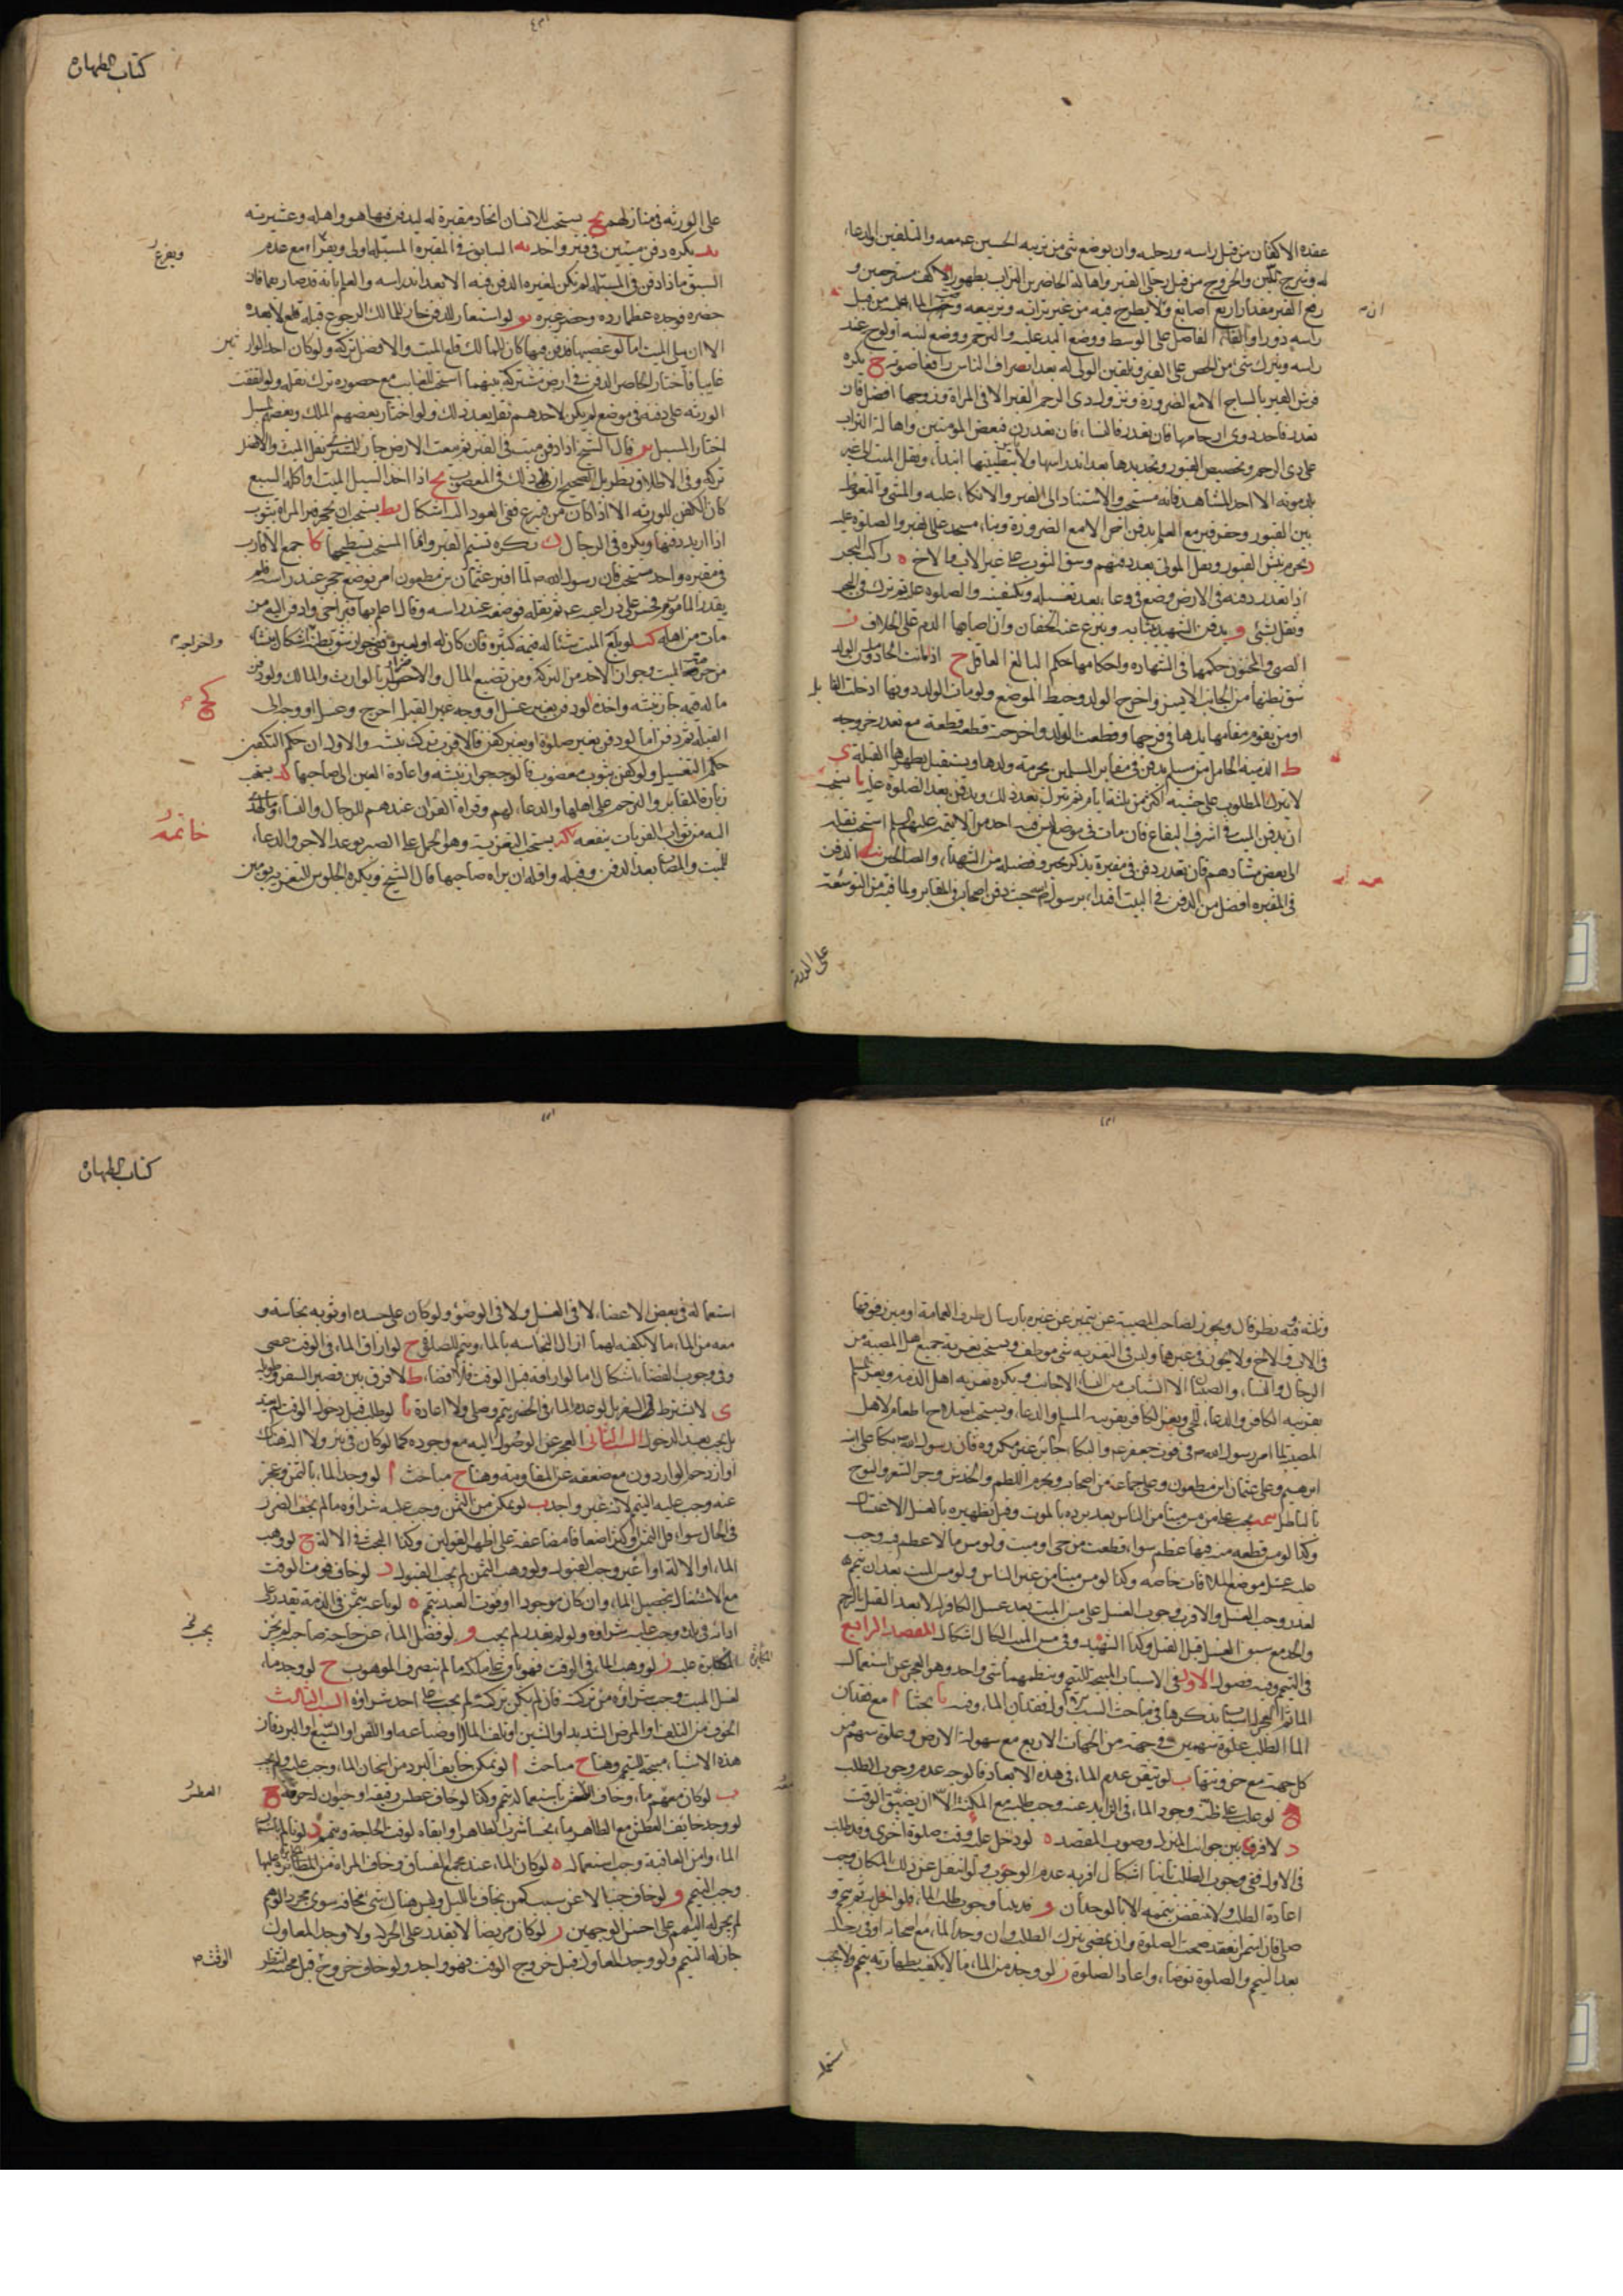 عقده الاكفان من قبل راسه ورجله وان يوضع شئ من تربه الحسين ع معه والتلقين والدعاء
له وشرج اللبن والخروج من قبل رجلى القبر واهاله الحاضرين التراب بظهور الاكف مسترجعين و
رفع القبر مقدار اربع اصابع ولا يطرح فيه من غير ترابه وتربيعه وصب الماء عليه من قبل
راسه دورا والقاء الفاضل على الوسط ووضع اليد عليه والترحم ووضع لبنه او لوح عند
راسه ويترك شئ من الحصى على القبر وتلقين الولى له بعد انصراف الناس رافعا صوته ج يكره
فرش القبر بالساج الا مع الضرورة ونزول ذى الرحم القبر الا فى المراة وزوجها افضل فان
تعذر فاحد ذوى ارحامها فان تعذر فالنساء فان تعذرن فبعض المومنين واهاله التراب
على ذى الرحم وتجصيص القبور وتجديدها بعد اندراسها ولا باس بتطيينها ابتداء ونقل الميت الى غير
بلد موته الا احد المشاهد فانه مستحب والاستناد الى القبر والاتكاء عليه والمشى والتغوط
بين القبور وحفر قبر مع العلم بدفن اخر الا مع الضرورة وبناء مسجد على القبر والصلوة عليه
د يحرم نبش القبور ونقل الموتى بعد دفنهم وشق الثوب على غير الاب والاخ ه راكب البحر
اذا تعذر دفنه فى الارض وضع فى وعاء بعد تغسيله وتكفينه والصلوة عليه ثم ترك فى البحر
وثقل بشئ و يدفن الشهيد بثيابه وينزع عنه الخفان وان اصابهما الدم على الخلاف ز
الصبى والمجنون حكمهما فى الشهاده واحكامها حكم البالغ العاقل ح اذا ماتت الحامل دون الولد
شق بطنها من الجانب الايسر واخرج الولد وخيط الموضع ولو مات الولد دونها ادخلت القابله
او من يقوم مقامها يدها فى فرجها وقطعت الولد واخرجته قطعه قطعة مع تعذر خروجه
ط الذميه الحامل من مسلم يدفن فى مقابر المسلمين بحرمة ولدها ويستقبل بظهرها القبلة ى
لا يترك المصلوب على خشبه اكثر من ثلثة ايام ثم ينزل بعد ذلك ويدفن بعد الصلوة عليه يا يستحب
ان يدفن الميت فى اشرف البقاع فان مات فى موضع ليس فيه احد من الائمه عليهم السلام استحب نقله
الى بعض مشاهدهم فان تعذر دفن فى مقبرة يذكر بخير وفضيله من الشهداء والصالحين يب الدفن
فى المقبره افضل من الدفن فى البيت اقتداء برسول الله حيث دفن اصحابه فى المقابر ولما فيه من التوسعة
على الورثة
كتاب الطهارة
على الورثه فى منازلهم يج يستحب للانسان اتخاذ مقبرة له ليدفن فيها هو واهله وعشيرته
يد يكره دفن ميتين فى قبر واحد يه السابق فى المقبرة المسبله اولى ويقرع مع عدم
ويقرع
السبق فاذا دفن فى المسبله لم يكن لغيره الدفن فيه الا بعد اندراسه والعلم بانه قد صار رميما فان
حفره فوجد عظما رده وحفر غيره يو لو استعار للدفن جاز للمالك الرجوع قبله لا بعده
الا ان يبلى الميت اما لو غصبها فدفن فيها كان للمالك قلع الميت والافضل تركه ولو كان احد الوارثين
غايبا فاختار الحاضر الدفن فى ارض مشتركة بينهما استحب للغايب مع حضوره ترك نقله ولو اتفقت
الورثه على دفنه فى موضع لم يكن لاحدهم نقله بعد ذلك ولو اختار بعضهم الملك وبعضهم المسبل
اختار المسبل يز قال الشيخ اذا دفن ميت فى القبر ثم بيعت الارض جاز للمشترى نقل الميت والافضل
تركه وفى الاطلاق نظر بل الصحيح ان ذلك فى المغصوب يح اذا اخذ السيل الميت او اكله السبع
كان الكفن للورثه الا اذا كان من متبرع ففى العود اليه اشكال يط يستحب ان يجمر قبر المراة بثوب
اذا اريد دفنها ويكره فى الرجال ك يكره تسنيم القبر وانما المستحب تسطيحها كا جمع الاقارب
فى مقبره واحده مستحب فان رسول الله ص لما اقبر عثمان بن مظعون امر بوضع حجر عند راسه فلم
مات من اهله كب لو بلع الميت شيئا له قيمة كثيرة فان كان له او لغيره ففى جواز شق بطنه اشكال ينشا
كج
ماله قيمه جاز نبشه واخذه ولو دفن بغير غسل او وجه غير القبله اخرج وغسل او وجه الى
القبله ثم دفن اما لو دفن بغير صلوة او بغير كفن فالاقرب ترك نبشه والاولى ان حكم التكفين
حكم التغسيل ولو كفن بثوب مغصوب فالوجه جواز نبشه واعادة العين الى صاحبها كد يستحب
زيارة المقابر والترحم على اهلها والدعاء لهم وقراة القران عندهم للرجال والنساء وما يهدى
خاتمه
اليه من ثواب القربات ينفعه كه يستحب التعزية وهو الحمل على الصبر بوعد الاجر والدعاء
للميت والمصاب بعد الدفن وقبله واقله ان يراه صاحبها قال الشيخ ويكره الجلوس للتعزيه يومين
وثلثه وفيه نظر قال ويجوز لصاحب المصيبة ان يتميز عن غيره بارسال طرف العمامة او ميزر فوقها
فى الاب والاخ ولا يجوز فى غيرهما وليس فى التعزيه شئ موظف ويستحب تعزية جميع اهل المصيبة من
الرجال والنساء والصبيان الا الشباب من النساء الاجانب ويكره تعزيه اهل الذمة ويعزى المسلم
المصيبه لما امر رسول الله ص فى فوت جعفر ع والبكاء جائز غير مكروه فان رسول الله ص بكا على ابنه
ابرهيم وعلى عثمان بن مظعون وعلى جماعة من اصحابه ويحرم اللطم والخدش وجز الشعر والنوح
بالباطل تتمه يجب على من مس ميتا من الناس بعد برده بالموت وقبل تطهيره بالغسل الاغتسال
وكذا لو مس قطعه منه فيها عظم سواء قطعت من حى او ميت ولو مس ما لا عظم فيه وجب
عليه غسل موضع الملاقات خاصه وكذا لو مس ميتا من غير الناس ولو مس الميت بعد ان يمم
لعذر وجب الغسل والاقرب وجوب الغسل على من مس الميت بعد غسل الكافر له لا بعد القتل بالرجم
والحد مع سبق الغسل قبل القتل وكذا الشهيد وفى مس الميت الكال اشكال المقصد الرابع
فى التيمم وفيه فصول الاول فى الاسباب المبيحة للتيمم وينظمهما شئ واحد وهو العجز عن استعمال
الماء ثم للعجز اسباب نذكرها فى مباحث السبب الاول فقدان الماء وفيه يا بحثا ا مع فقدان
الماء الطلب غلوة سهمين فى جهة من الجهات الاربع مع سهولة الارض وغلوة سهم من
كل جهة مع حزونتها ب لو تيقن عدم الماء فى هذه الابعاد فالوجه عدم وجوب الطلب
ج لو غلب على ظنه وجود الماء فى الزايد عنه وجب طلبه مع المكنة الا ان يضيق الوقت
د لا فرق بين جوانب المنزل وصوب المقصد ه لو دخل عليه وقت صلوة اخرى وقد طلب
فى الاول ففى وجوب الطلب ثانيا اشكال اقربه عدم الوجوب ولو انتقل عن ذلك المكان وجب
اعادة الطلب ولا ينتقض تيممه الا بالوجدان و قد بينا وجوب طلب الماء فلو اخل به ثم تيمم و
صلى فان استمر الفقد صحت الصلوة وان عصى بترك الطلب وان وجد الماء مع اصحابه او فى رحله
بعد التيمم والصلوة توضاء واعاد الصلوة ز لو وجد من الماء ما لا يكفيه لطهارته تيمم ولا يجب
استعماله
كتاب الطهارة
استعماله فى بعض الاعضاء لا فى الغسل ولا فى الوضؤ ولو كان على جسده او ثوبه نجاسة و
معه من الماء ما لا يكفيه لهما ازال النجاسه بالماء وتيمم للصلاة ح لو اراق الماء فى الوقت عصى
وفى وجوب القضاء اشكال اما لو اراقه قبل الوقت فلا قضاء ط لا فرق بين قصير السفر وطويله
ى لا يشترط فى السفر بل لو عدم الماء فى الحضر تيمم وصلى ولا اعادة يا لو طلب قبل دخول الوقت لم يعتد
بل يجب بعد الدخول السبب الثانى العجز عن الوصول اليه مع وجوده كما لو كان فى بئر ولا الة هناك
او ازدحم الواردون مع ضعفه عن المقاومة وهنا ح مباحث ا لو وجد الماء بالثمن وعجز
عنه وجب عليه التيمم لانه غير واجد ب لو تمكن من الثمن وجب عليه شراؤه ما لم يخف الضرر
فى الحال سواء قل الثمن او كثر اضعافا مضاعفة على اظهر القولين وكذا البحث فى الالة ج لو وهب
الماء او الالة او اعير وجب القبول ولو وهب الثمن لم يجب القبول د لو خاف فوت الوقت
مع الاشتغال بتحصيل الماء وان كان موجودا او فوت العبد تيمم ه لو باعه بثمن فى الذمة يقدر على
ادائه فى بلده وجب عليه شراؤه ولو لم يقدر لم يجب و لو فضل الماء عن حاجة صاحبه لم يجز
المكابرة عليه ز لو وهب الماء فى الوقت فهو باق على ملكه ما لم يتصرف الموهوب ح لو وجد ماء
المكابرة
لغسل الميت وجب شراؤه من تركته فان لم يكن تركة لم يجب على احد شراؤه السبب الثالث
الخوف من التلف او المرض الشديد او الشين او تلف المال او ضياعه او اللص او السبع او البرد فان
هذه الاشياء مبيحة للتيمم وهنا ح مباحث ا لو تمكن خايف البرد من اسخان الماء وجب عليه ولم يجز
ب لو كان معه ماء وخاف العطش باستعماله تيمم وكذا لو خاف عطش رفيقه او حيوان له حرمة ج
العطش
لو وجد خايف العطش مع الطاهر ماء نجسا شرب الطاهر وابقاه لوقت الحاجة وتيمم د لو
الماء وامن العاقبة وجب استعماله ه لو كان الماء عند مجمع الفساق وخاف المراة من المكابرة عليها
وجب التيمم و لو خاف جبنا لا عن سبب كمن يخاف بالليل وليس هناك شئ يخافه سوى مجرد الوهم
لم يجز له التيمم على احسن الوجهين ز لو كان مريضا لا يقدر على الحركة ولا وجد المعاون
جاز له التيمم ولو وجد المعاون قبل خروج الوقت فهو واجد ولو خاف خروج
الوقت